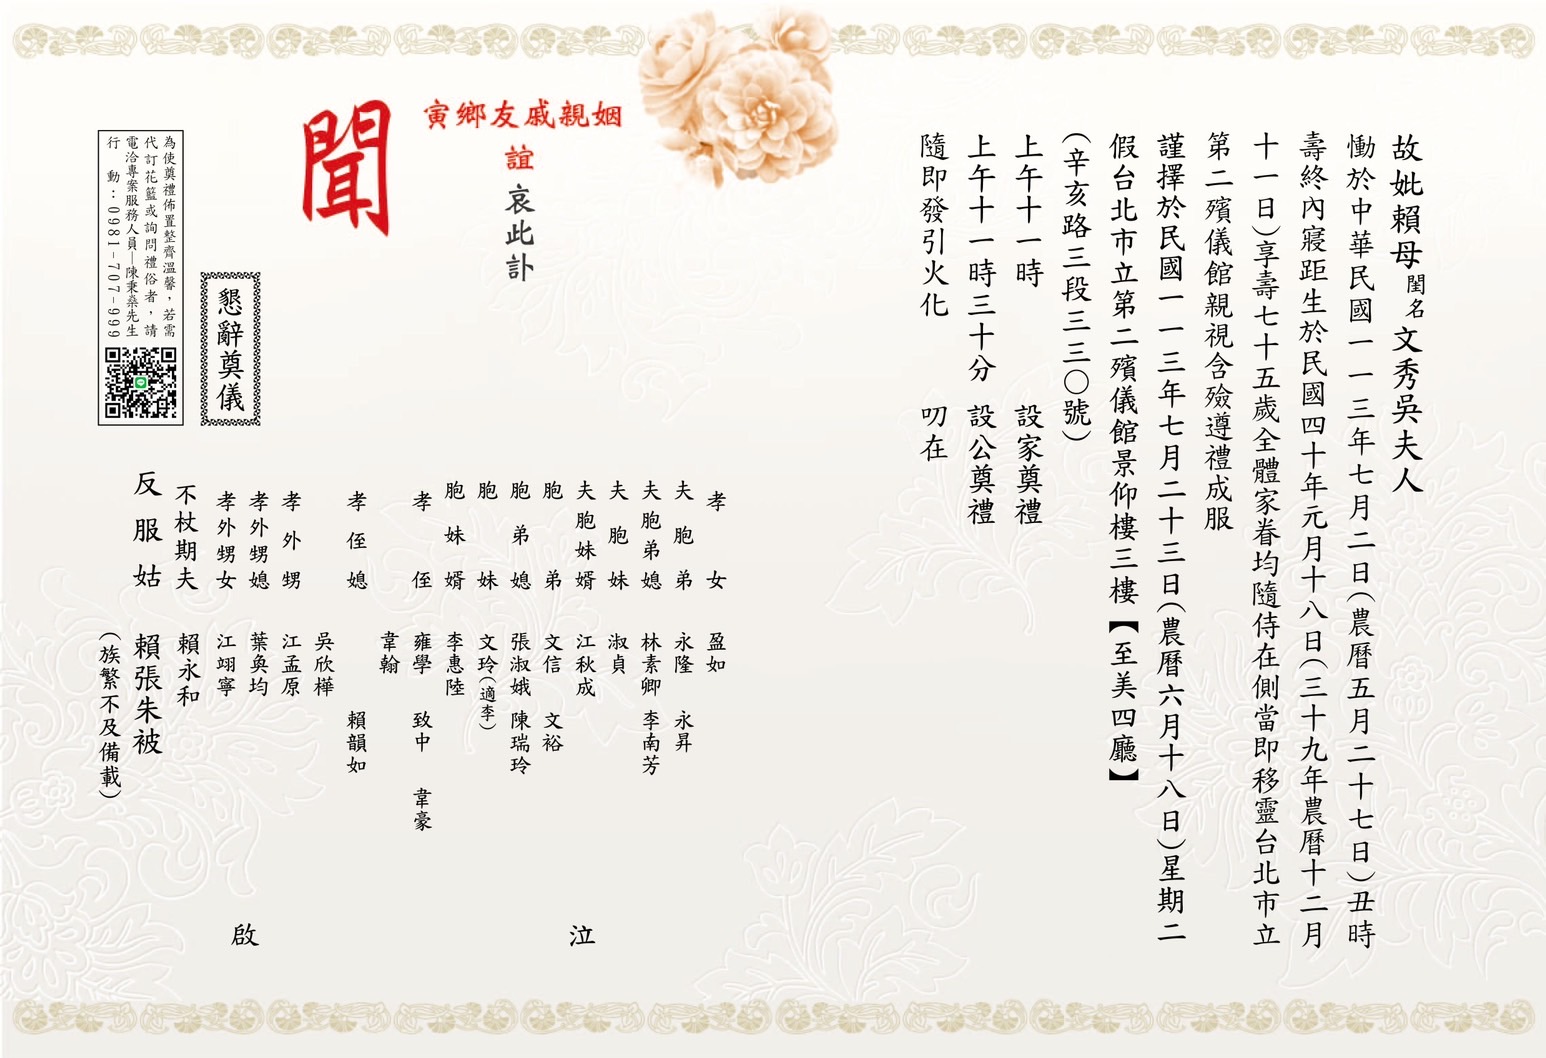 故妣賴母閨名文秀吳夫人
慟於中華民國一一三年七月二日(農曆五月二十七日)丑時
壽終內寢距生於民國四十年元月十八日(三十九年農曆十二月
十一日)享壽七十五歲全體家眷均隨侍在側當即移靈台北市立
第二殯儀館親視含殮遵禮成服
謹擇於民國一一三年七月二十三日(農曆六月十八日)星期二
假台北市立第二殯儀館景仰樓三樓【至美四廳】
(辛亥路三段三三〇號)
上午十一時 設家奠禮
上午十一時三十分 設公奠禮
隨即發引火化 叨在
姻親戚友鄉寅
誼
哀此訃
聞
孝女 盈如
夫胞弟 永隆 永昇
夫胞弟媳 林素卿 李南芳
夫胞妹 淑貞
夫胞妹婿 江秋成
胞弟 文信 文裕
胞弟媳 張淑娥 陳瑞玲
胞妹 文玲(適李)
胞妹婿 李惠陸
孝侄 雍學 致中 韋豪
韋翰
孝侄媳 賴韻如
吳欣樺
孝外甥 江孟原
孝外甥媳 葉奐均
孝外甥女 江翊寧
不杖期夫 賴永和
反服姑 賴張朱被
(族繁不及備載)
泣
啟
懇辭奠儀
為使奠禮佈置整齊溫馨，若需
代訂花籃或詢問禮俗者，請
電洽專案服務人員—陳秉燊先生
行動：0981-707-999